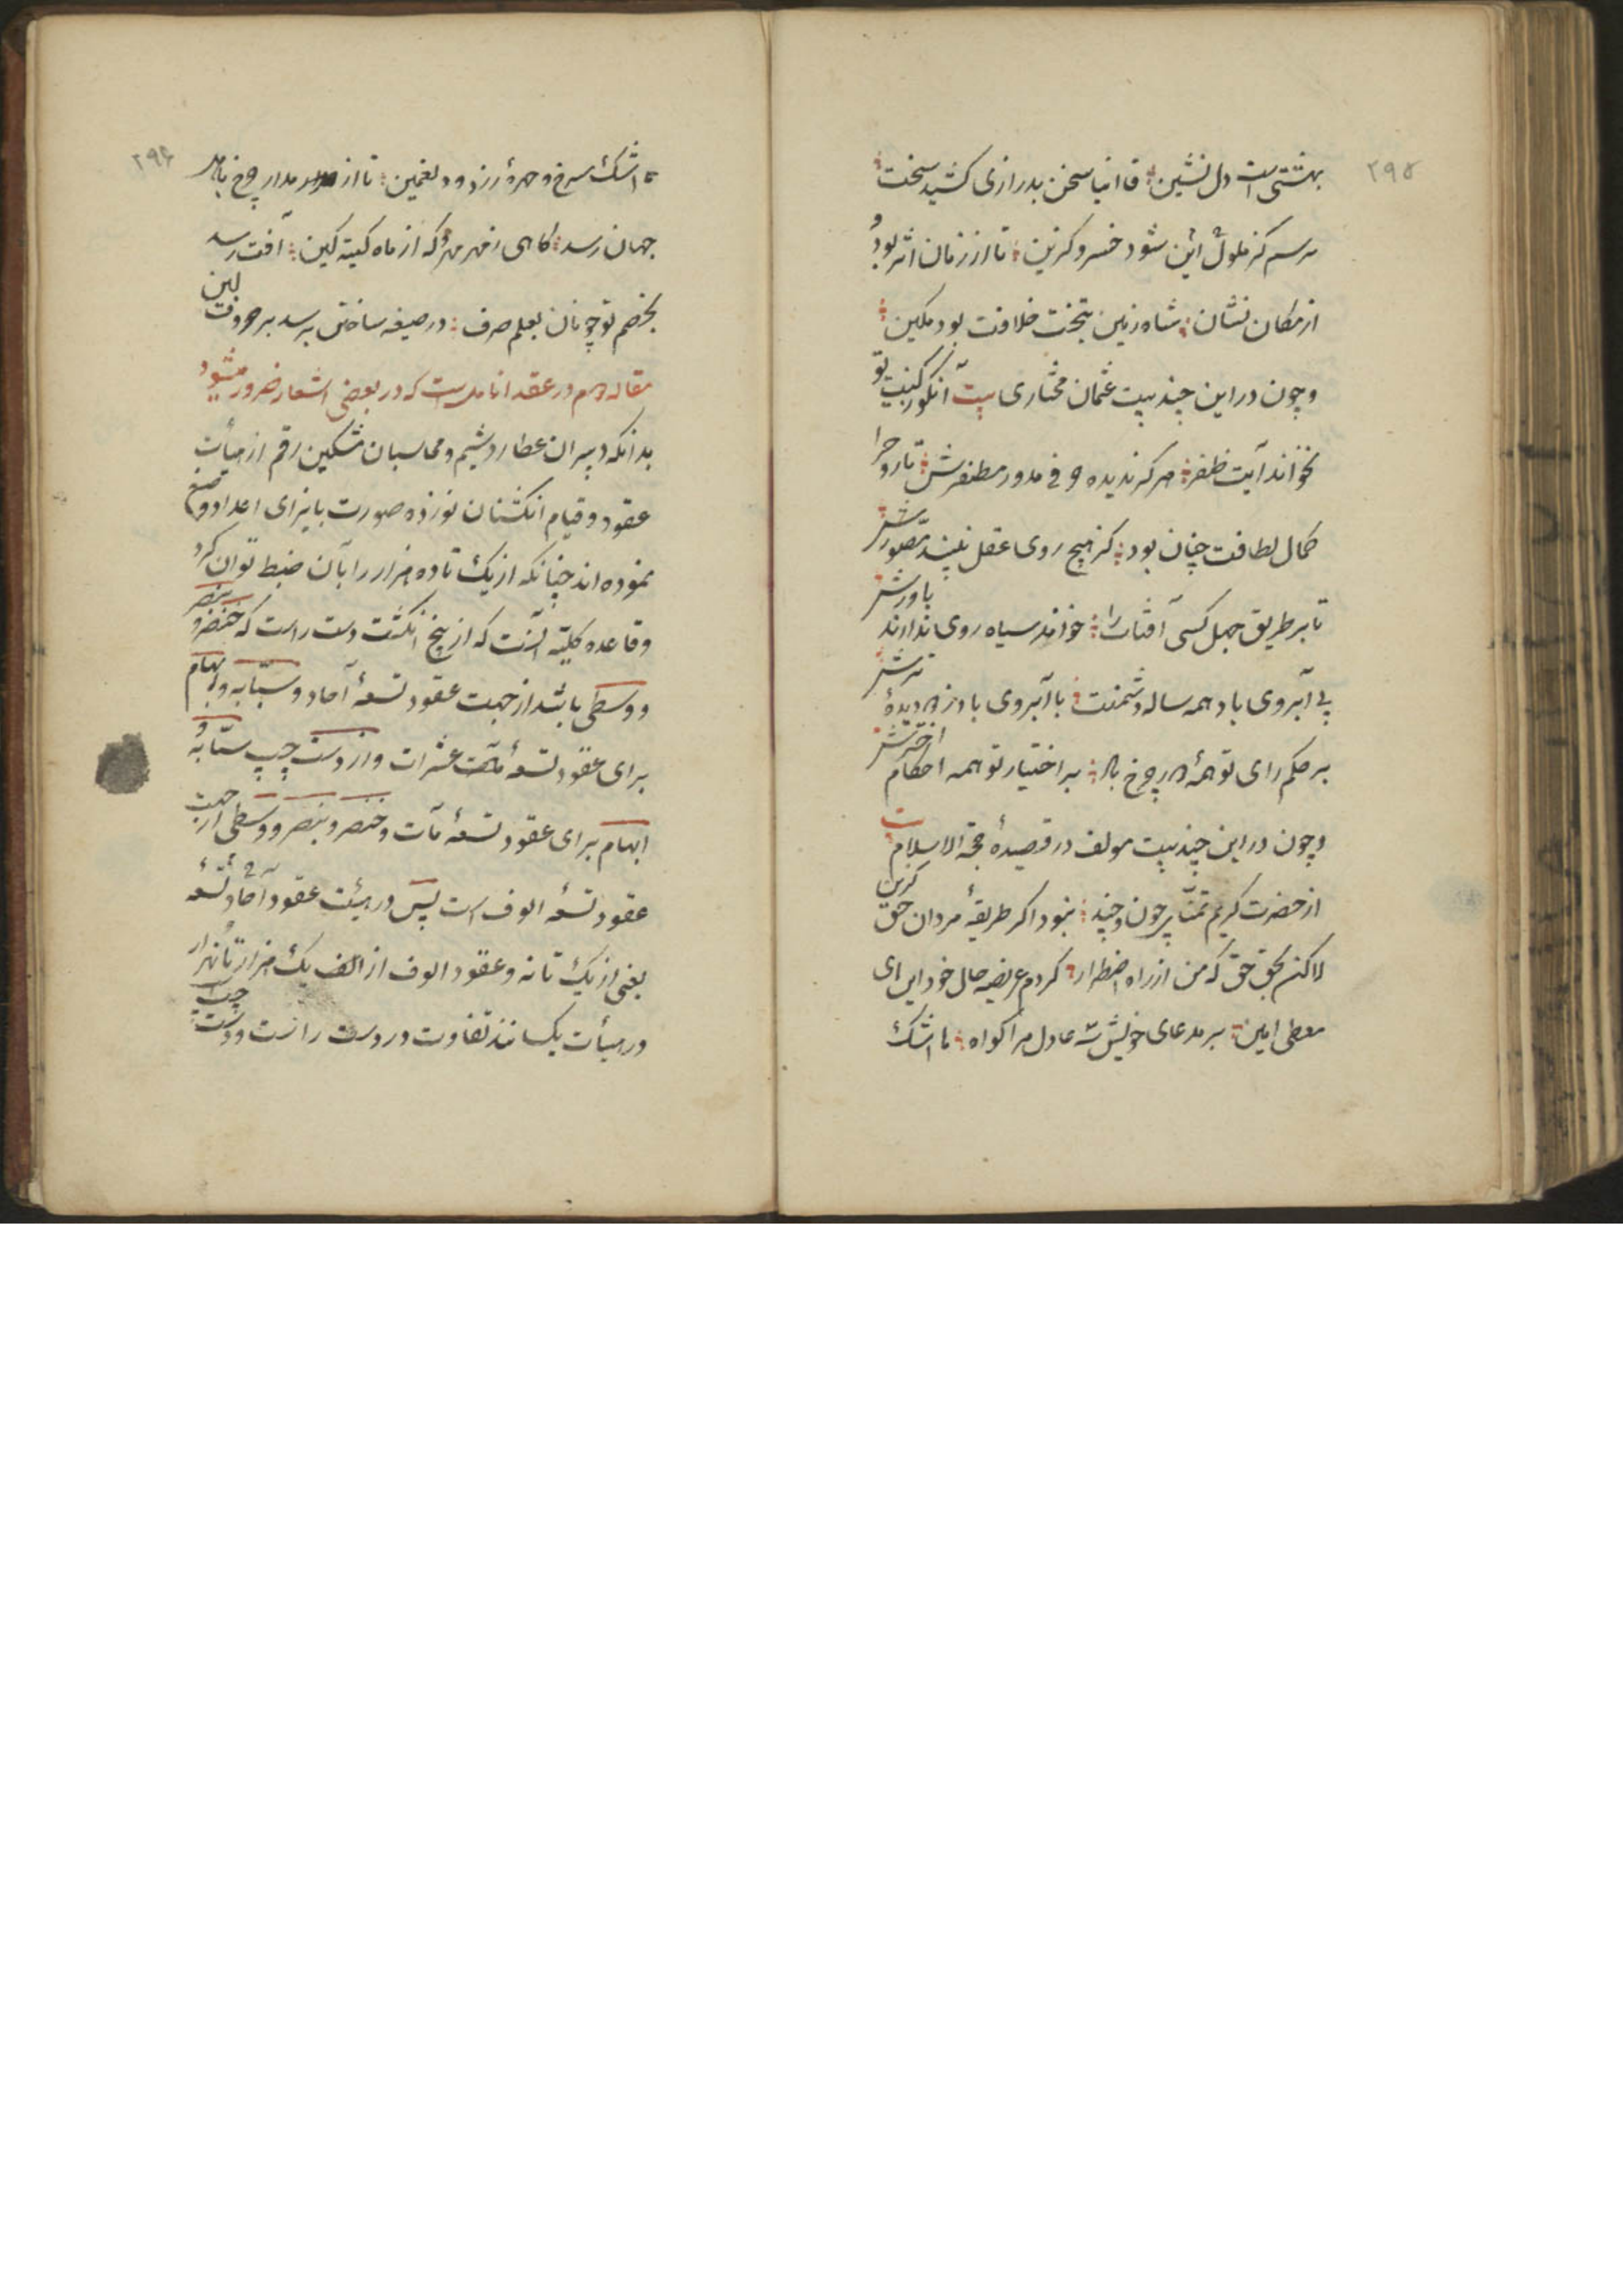 ۲۹۵
بهشتی است دل نشین قاانیا سخن بدرازی کشید سخت
ترسم کز ملول این شود خسرو کزین تا از زمان اثر بود و
از مکان نشان شاه زمین بتخت خلافت بود مکین
و چون در این چند بیت عثمان مختاری بیت آنکو ز کنیت تو
نخواند آیت ظفر هرگز ندیده و فی مدور مظفرش تا روح را
کمال لطافت چنان بود کز هیچ روی عقل نبیند تصورش
تا بر طریق جهل کسی آفتاب را خواند سیاه روی ندارند باورش
بی آبروی باد همه ساله دشمنت با آبروی باد ز هر دیدهٔ ترش
بر حکم رای تو همهٔ هر چرخ با بر اختیار تو همه احکام اخترش
و چون در این چند بیت مولف در قصیدهٔ حجة الاسلام
از حضرت کریم تمنّا چون و چند نبود اگر طریقهٔ مردان حق گزین
لاکن بحق حق که من از راه اضطرار کردم عریضه حال خود این ای
معطی امین بر مدعای خویش شه عادل مرا گواه با اشک
۲۹۶
با اشک سرخ و چهرهٔ زرد و دل غمین تا از مدار چرخ با
جهان رسد گاهی ز مهر مهر و که از ماه کینه کین آفت رسد
بخصم تو چونان بعلم صرف در صیغه ساختن برسد بر حروف لین
مقاله دهم در عقد انامل است که در بعضی اشعار ضرور میشود
بدانکه دبیران عطارد شیم و محاسبان مشکین رقم از هیأت
عقود و قیام انگشتان نوزده صورت بایزای اعداد وضع
نموده اند چنانکه از یک تا ده هزار را بآن ضبط توان کرد
و قاعده کلیّه آنست که از پنج انگشت دست راست که خنصر و بنصر
و وسطی باشد از جهت عقود تسعهٔ آحاد و سبّابه و ابهام
برای عقود تسعهٔ عشرات و از دست چپ سبّابه و
ابهام برای عقود تسعهٔ مآت و خنصر و بنصر و وسطی از جهت
عقود تسعه الوف است پس در هیئت عقود آحاد تسعه
یعنی از یک تا نه و عقود الوف از الف یک هزار تا نهزار
در هیأت یکسانند تفاوت در دست راست و دست چپ